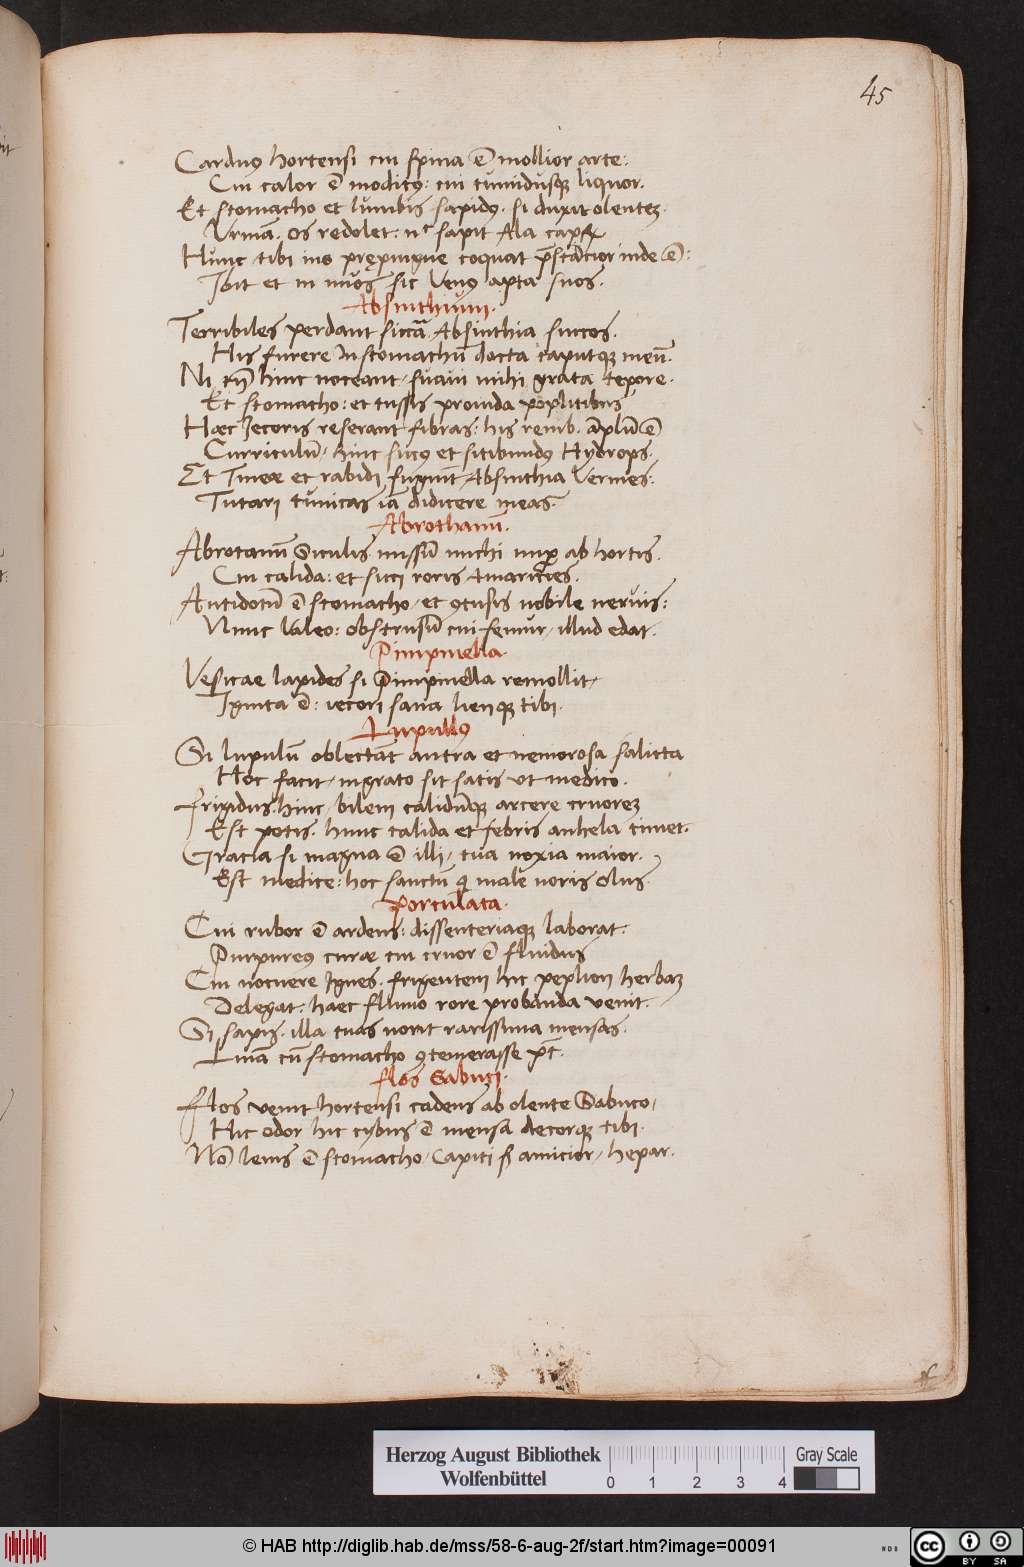 45
Carduꝰ hortensi cui spina ē mollior arte:
Cui calor ē modicꝰ: cui tumidusqꝫ liquor.
Et stomacho et lumbis sapidꝰ. si duxit olentez
Vrinā. os redolet: nec sapit Ala capꝝ
Hunc tibi ius prępingue coquat p̄stātior inde ē:
Ibit et in nuos sic Venꝰ apta suos.
Absinthium.
Terribiles perdant siccā Absinthia succos.
His furere In stomachū docta caputqꝫ meū.
Ni cū hinc noceant, suaui mihi grata tepore.
Et stomacho: et tussis prouida poplitibus
Hæc Jecoris reserant fibras: his renib. āplū ē
Curriculū, hinc sucꝰ et sitibundꝰ Hydrops.
Et Tineæ et rabidi fugiūt Absinthia Vermes:
Tutari tunicas iā didicere meas.
Abrothanū.
Abrotanū Siculis missū michi nuꝑ ab hortis.
Cui calida: et sicci roris Amarities.
Antidotū ē stomacho, et ꝯtusis nobile neruis:
Nunc Valeo: obstrusū cui femur, illud edat.
Pimpinella.
Vesicae lapides si Pimpinella remollit,
Ignita ē: iecori sana lienqꝫ tibi.
Lupullꝰ
Si lupulū oblectāt antra et nemorosa salicta
Hoc facit, ingrato sit satis ut medico.
Frigidus. hinc, bilem calidūqꝫ arcere cruorez
Est potis. hunc calida et febris anhela timet.
Gratia si magna ē illi, tua noxia maior.
Est medice: hoc sanctū ꝙ male noris Olus.
Porculata.
Cui rubor ē ardens: dissenteriaqꝫ laborat:
Purpureꝰ curæ cui cruor ē fluidus
Cui nocuere Ignes. frigentem hic peplion herbaz
Delegat: haec fluuio rore probanda uenit.
Si sapis. illa tuas norit rarissima mensas.
Luiā cū stomacho ꝯtemerasse pt̄.
flos Sabuci.
Flos uenit hortensi cadens ab olente Sabuco,
Hic odor hic cybus ē mensa decorqꝫ tibi.
Nō lenis ē stomacho, Capiti sꝫ amicior, hepar.
Herzog August Bibliothek
Wolfenbüttel
0 1 2 3 4
Gray Scale
© HAB http://diglib.hab.de/mss/58-6-aug-2f/start.htm?image=00091
cc BY SA